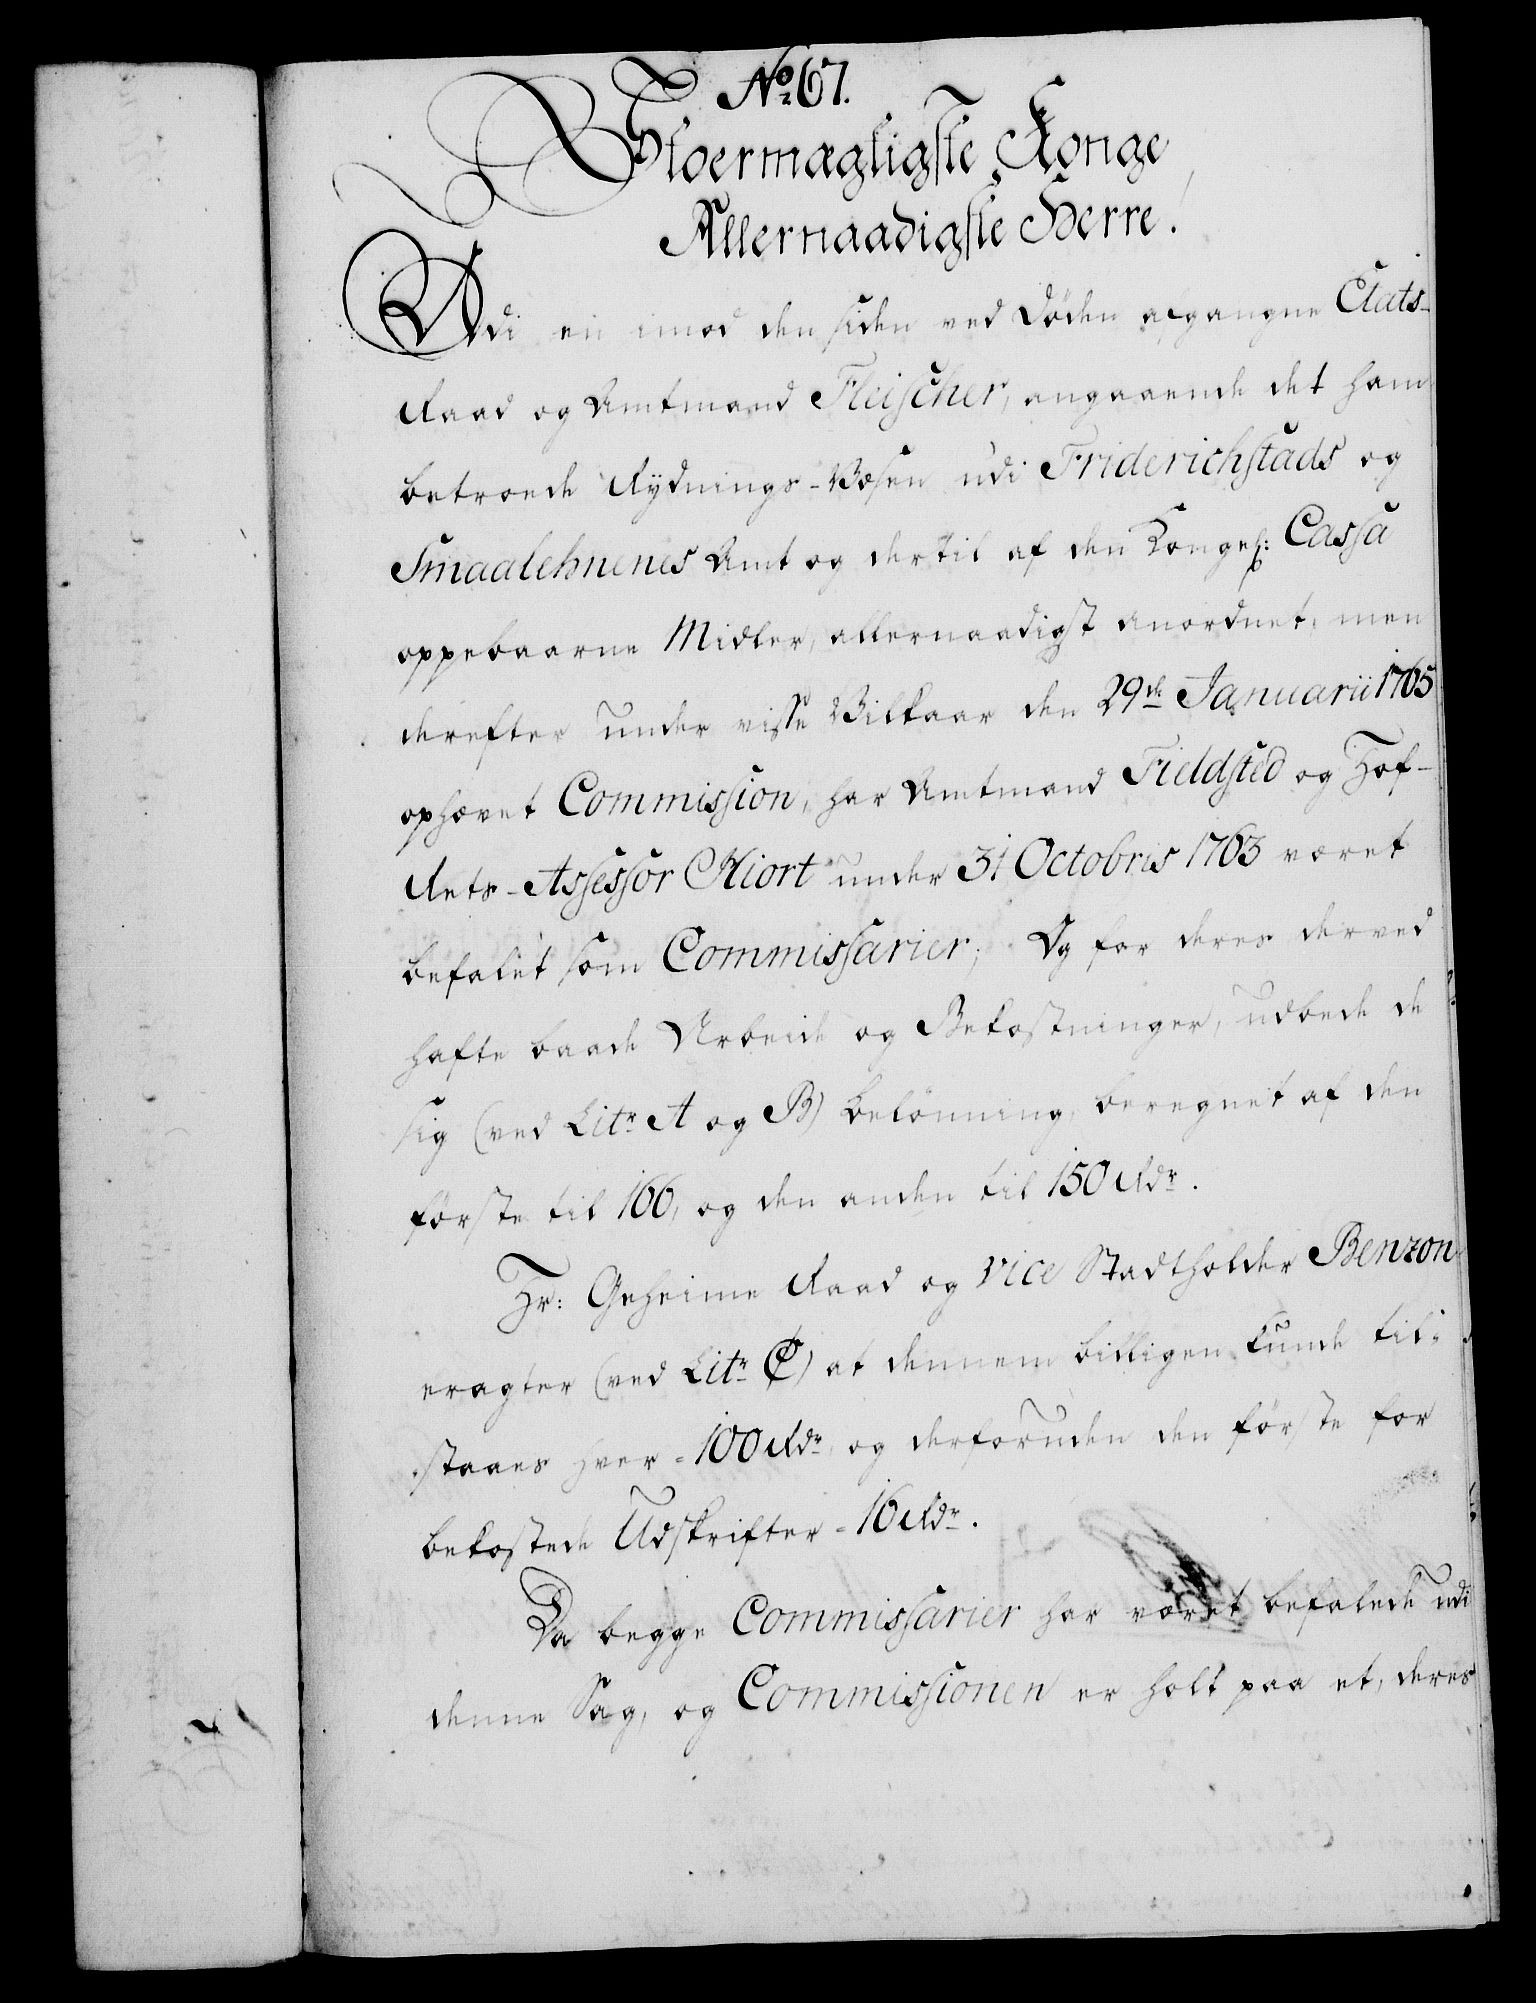 No 67.
Stoermægtigste Konge
Allernaadigste Herre!
Udi en imod den siden ved Døden afgangne Etats-
Raad og Amtmand Fleischer, angaaende det ham
betroede Rydnings-Væsen udi Friderichstads og
Smaalehnenes Amt og dertil af den Kongel: Cassa
oppebaarne Midler, allernaadigst anordnet, men
derefter under visse Vilkaar den 29de Januarii 1765
ophævet Commission, har Amtmand Fieldsted og Hof-
Rets-Assessor Hiort under 31 Octobris 1763 været
befalet som Commissarier; Og for deres derved
hafte baade Arbeide og Bekostninger, udbede de
sig (ved Litr A og B) belønning, beregnet af den
første til 166, og den anden til 150 Rdr.
Hr: Geheime Raad og Vice Stadtholder Benzon
eragter (ved Litr C) at dennem billigen kunde til-
staaes hver - 100 Rdr, og derforuden den første for
bekostede Udskrifter - 16 Rdr.
Da begge Commissarier har været befalede udi
denne Sag, og Commissionen er holt paa et, deres